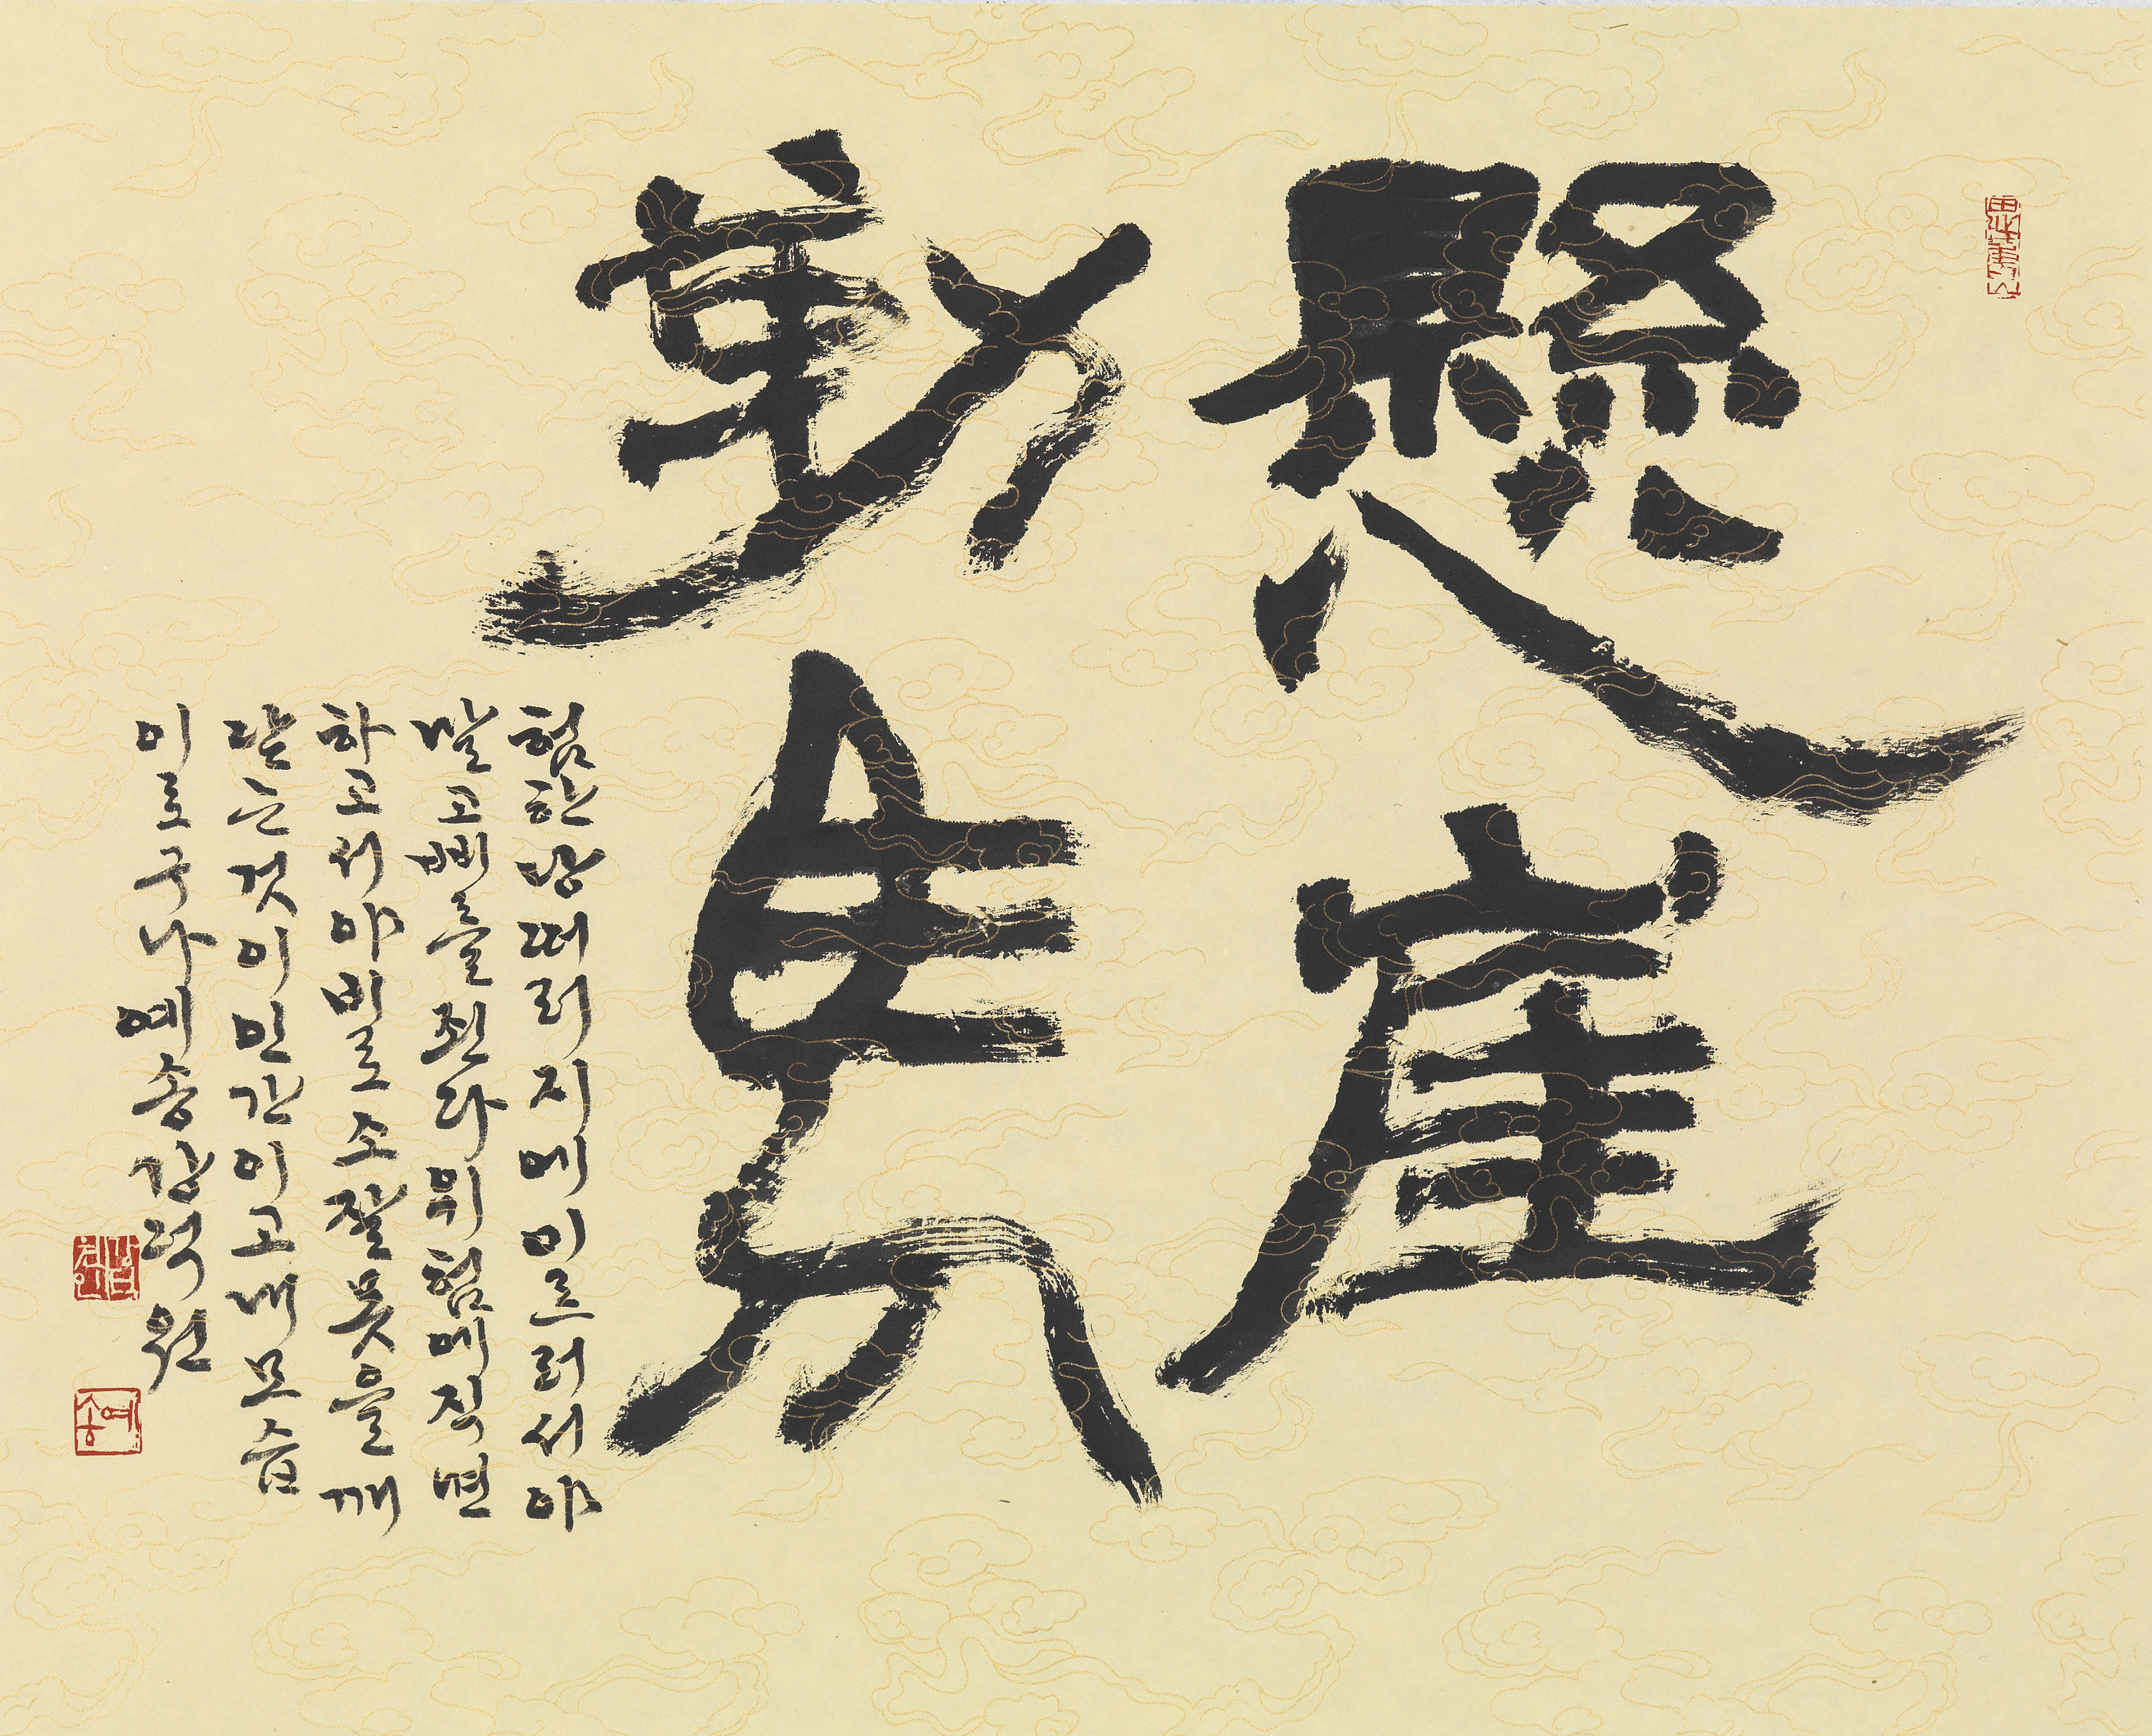 懸崖
勒馬
험한 낭떠러지에 이르러서야
말고삐를 쥔다 위험에 직면
하고서야 비로소 잘못을 깨
닫는 것이 인간이고 내 모습
이로구나 예송
예송